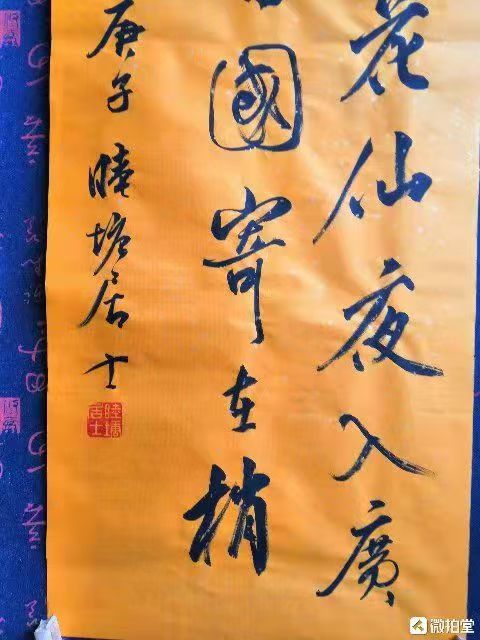 花仙夜入廣
國寄在梢
庚子 睦塘居士
睦塘居士
微拍堂